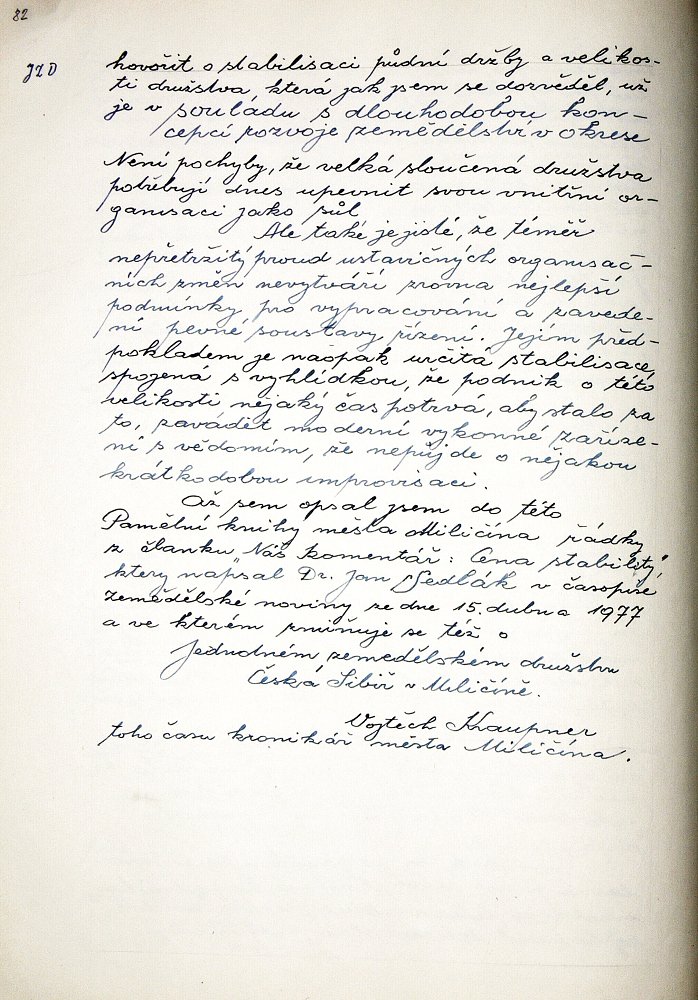 82
JZD
hovořit o stabilisaci půdní držby a velikos-
ti družstva, která jak jsem se dozvěděl, už
je v souladu s dlouhodobou kon-
cepcí rozvoje zemědělství v okrese
Není pochyby, že velká sloučená družstva
potřebují dnes upevnit svou vnitřní or-
ganisaci jako sůl
Ale také je jisté, že téměř
nepřetržitý proud ustavičných organisač-
ních změn nevytváří zrovna nejlepší
podmínky pro vypracování a zavede-
ní pevné soustavy řízení. Jejím před-
pokladem je naopak určitá stabilisace,
spojená s vyhlídkou, že podnik o této
velikosti nějaký čas potrvá, aby stalo za
to, zavádět moderní vykonné zaříze-
ní s vědomím, že nepůjde o nějakou
krátkodobou improvisaci.
Až sem opsal jsem do této
Pamětní knihy města Miličína řádky
z članku „Náš komentář: Cena stability“
ktery napsal Dr. Jan Sedlák v časopise
zemědělské noviny ze dne 15. dubna 1977
a ve kterém zmiňuje se též o
Jednotném zemedělském družstvu
Česká Sibiř v Miličíně.
Vojtěch Kraupner
toho času kronikář města Miličína.